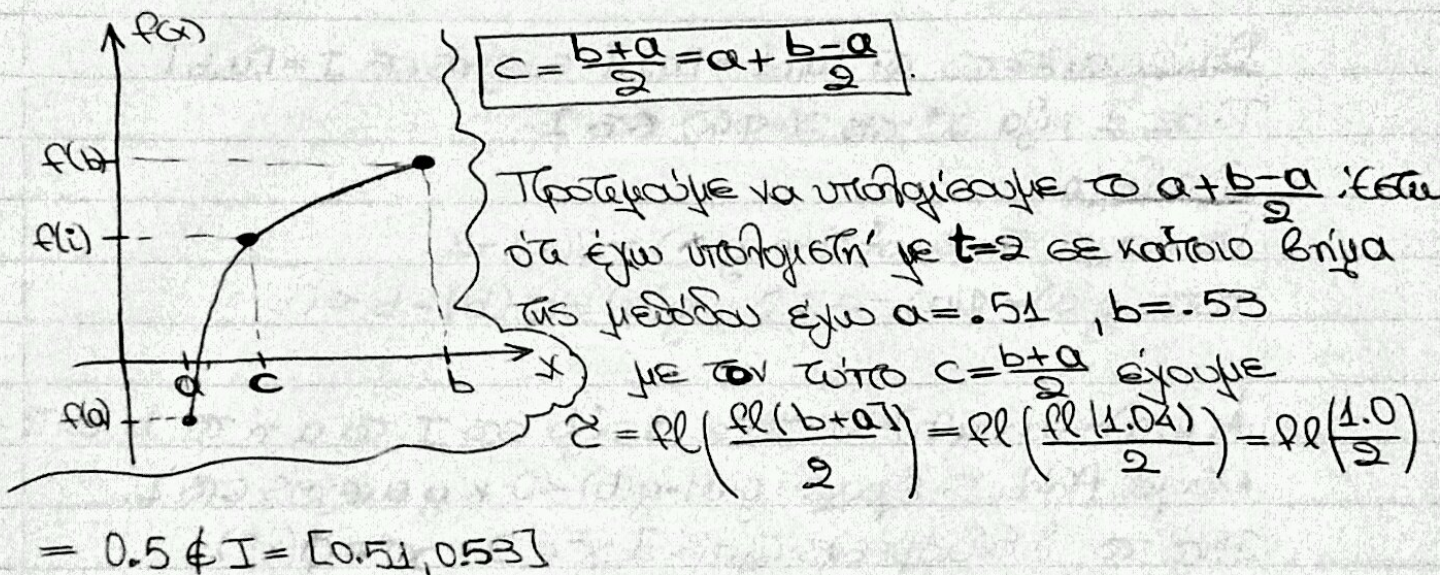 f(x)
c = \frac{b+a}{2} = a + \frac{b-a}{2}.
f(b)
f(i)
f(a)
a c b x
Προτιμούμε να υπολογίσουμε το a + \frac{b-a}{2}. Έστω
ότι έχω υπολογιστή με t=2 σε κάποιο βήμα
της μεθόδου έχω a=.51 , b=.53
με τον τύπο c = \frac{b+a}{2} έχουμε
c̃ = fl(\frac{fl(b+a)}{2}) = fl(\frac{fl(1.04)}{2}) = fl(\frac{1.0}{2})
= 0.5 ∉ I = [0.51, 0.53]